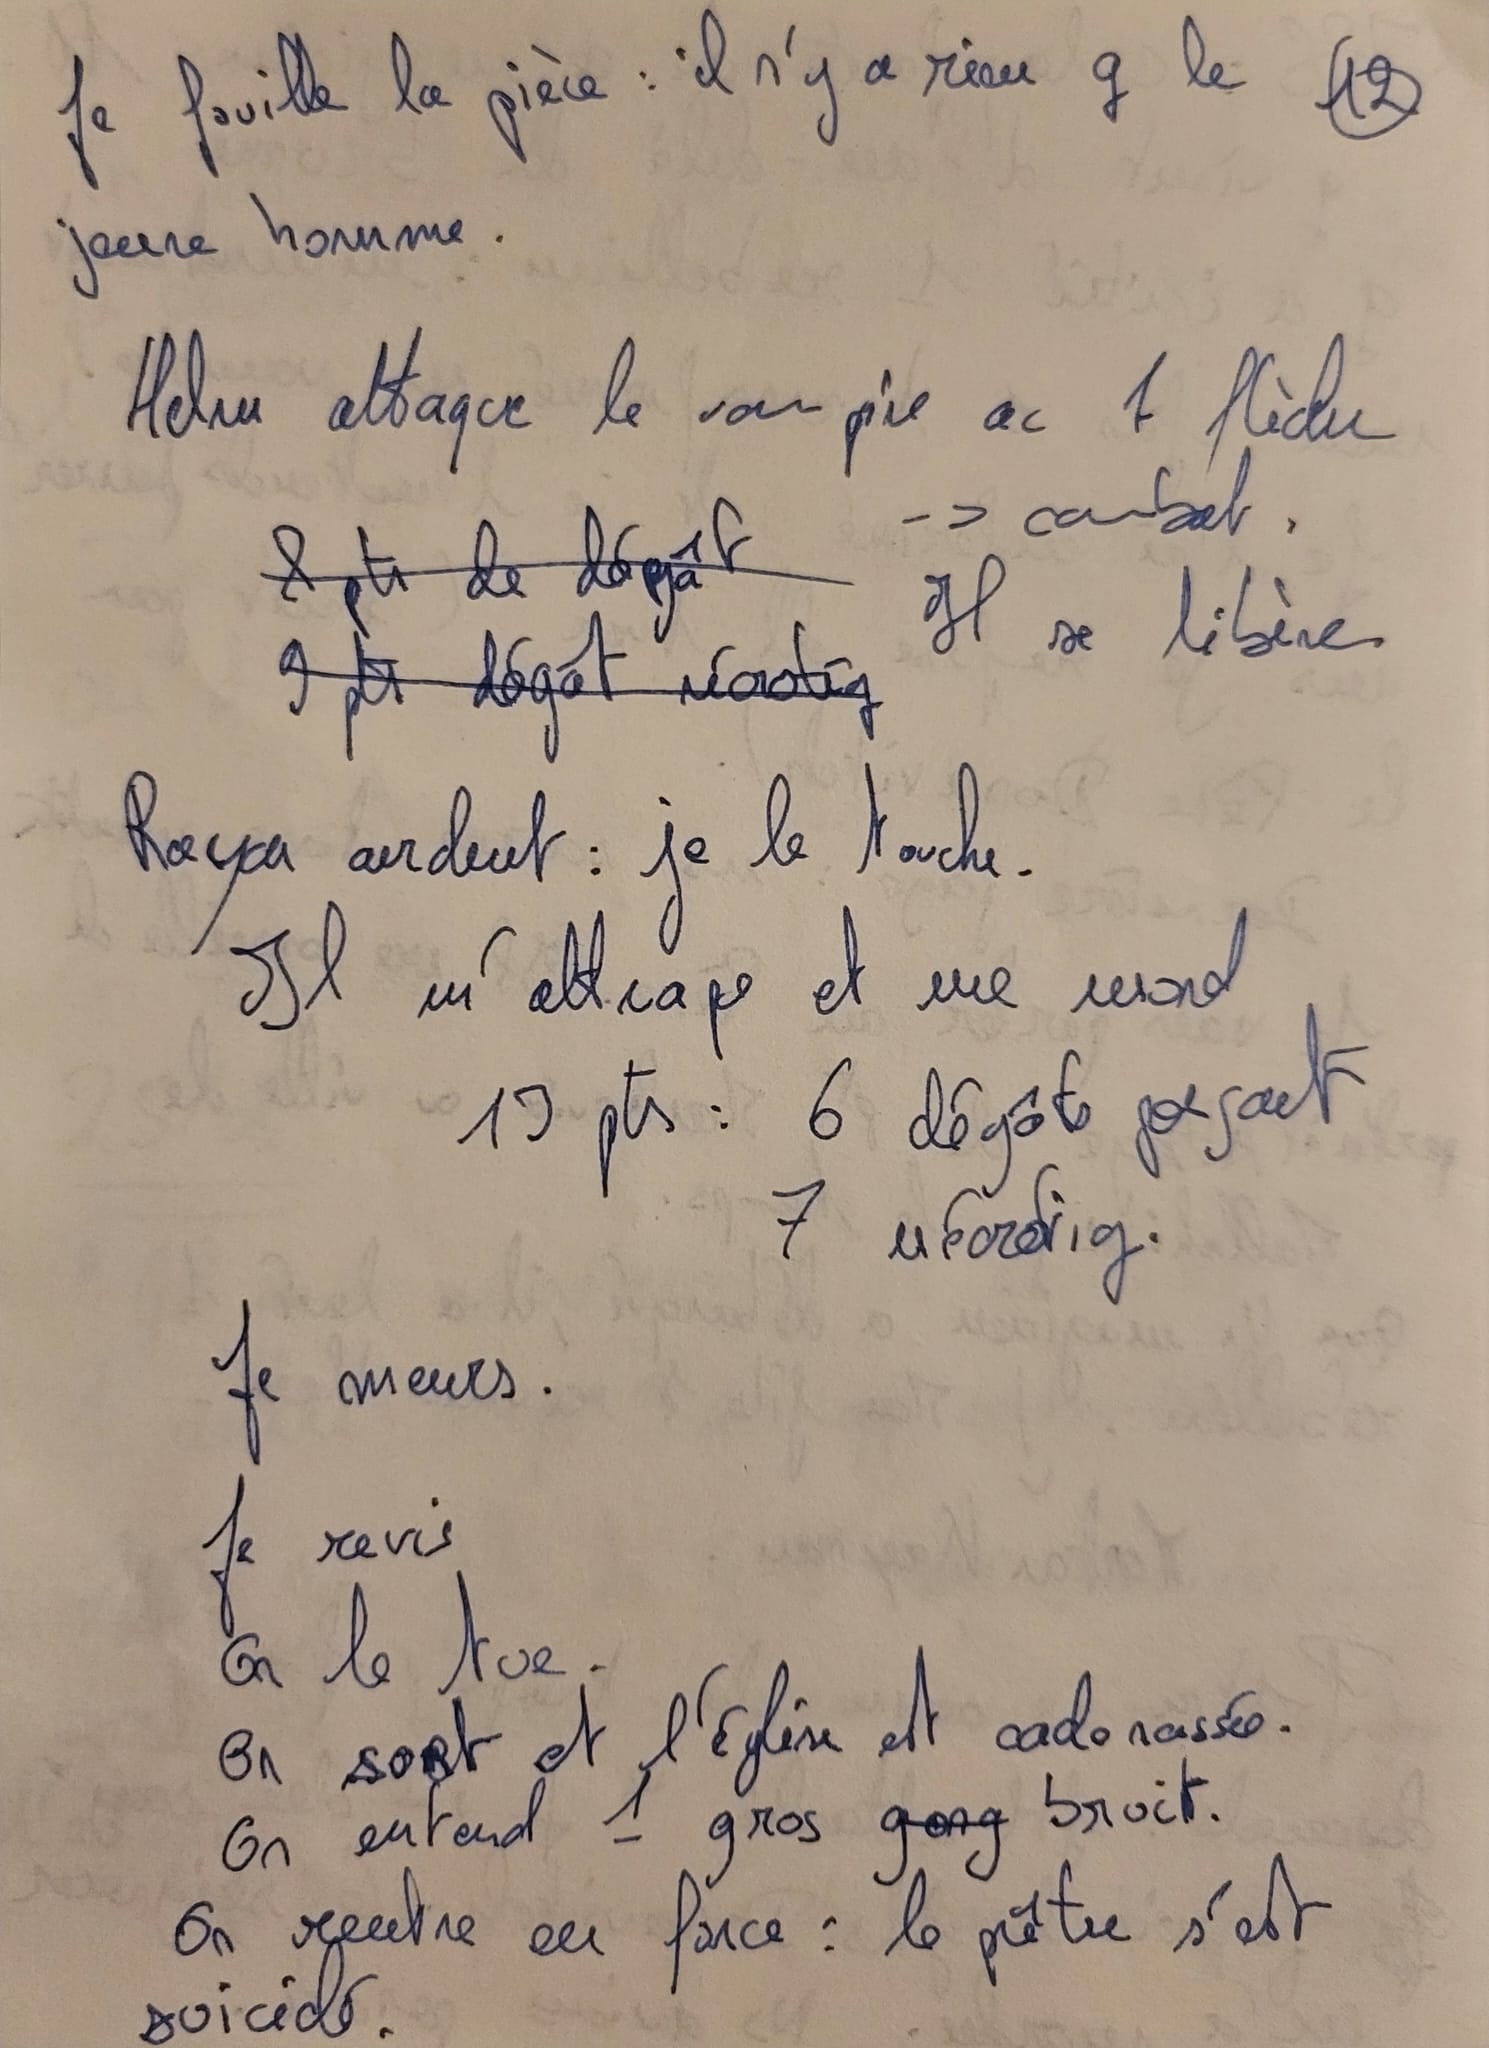 Je fouille la pièce : il n'y a rien q le 12
jeune homme.
Helru attaque le vampire ac 1 flèche
-> combat.
8 pts de dégât
Il se libère
9 pts dégât nécrotiq
Rayon ardent : je le touche.
Il m'attrape et me mord
13 pts : 6 dégâts perçant
7 nécrotiq.
Je meurs.
Je revis
On le tue.
On sort et l'église est cadenassée.
On entend 1 gros gong bruit.
On rentre en force : le prêtre s'est
suicidé.